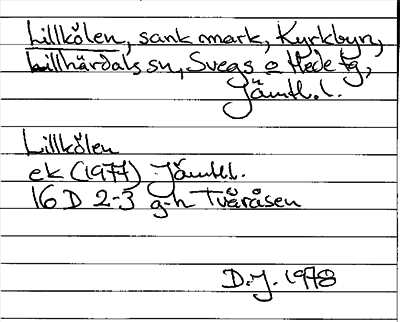 Lillkölen, sank mark, Kyrkbyn,
Lillhärdals sn, Svegs o Hede tg,
Jämtl.l.
Lillkölen
ek (1977) Jämtl.l.
16 D 2-3 g-h Tvåråsen
D.J. 1978